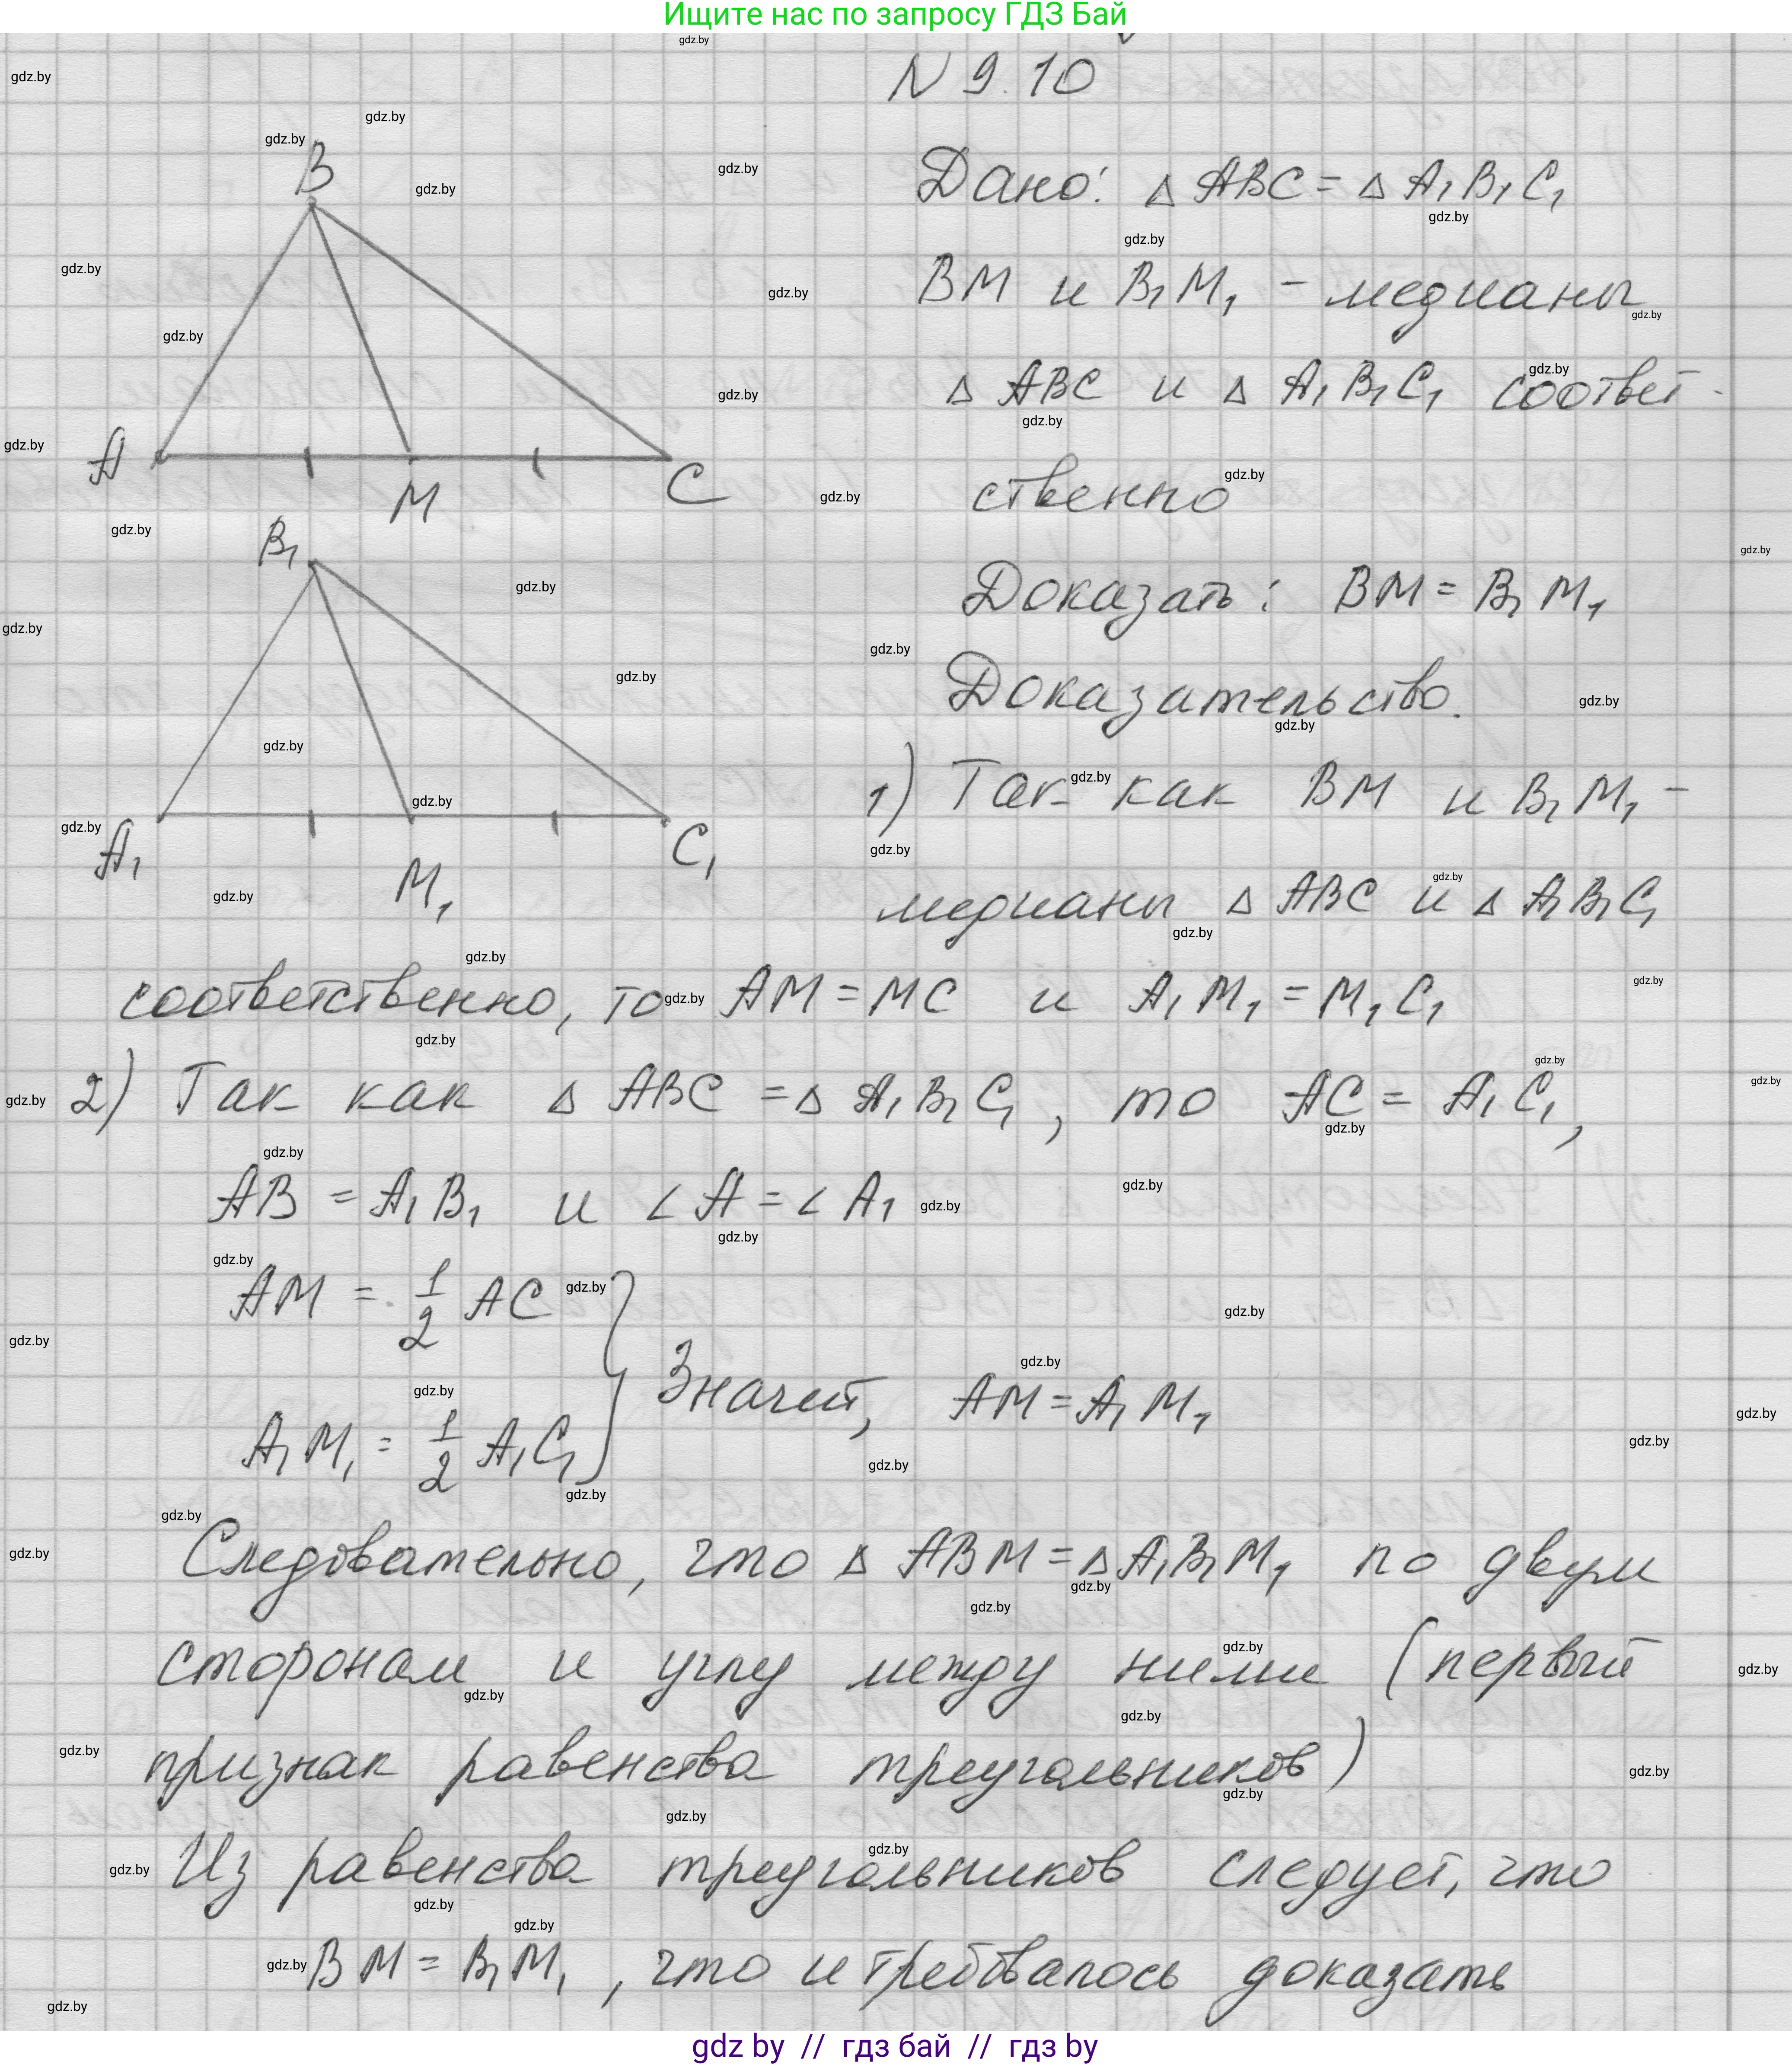 Ищите нас по запросу ГДЗ Бай
N 9.10
Дано: △ ABC = △ A₁B₁C₁
BM и B₁M₁ - медианы
△ ABC и △ A₁B₁C₁ соответ-
ственно
Доказать: BM = B₁M₁
Доказательство.
1) Так как BM и B₁M₁ -
медианы △ ABC и △ A₁B₁C₁
соответственно, то AM = MC и A₁M₁ = M₁C₁
2) Так как △ ABC = △ A₁B₁C₁, то AC = A₁C₁,
AB = A₁B₁ и ∠A = ∠A₁
AM = 1/2 AC
A₁M₁ = 1/2 A₁C₁ } Значит, AM = A₁M₁
Следовательно, что △ ABM = △ A₁B₁M₁ по двум
сторонам и углу между ними (первый
признак равенства треугольников)
Из равенства треугольников следует, что
BM = B₁M₁, что и требовалось доказать
B
A
M
C
B₁
A₁
M₁
C₁
gdz.by
gdz by // гдз бай // гдз by